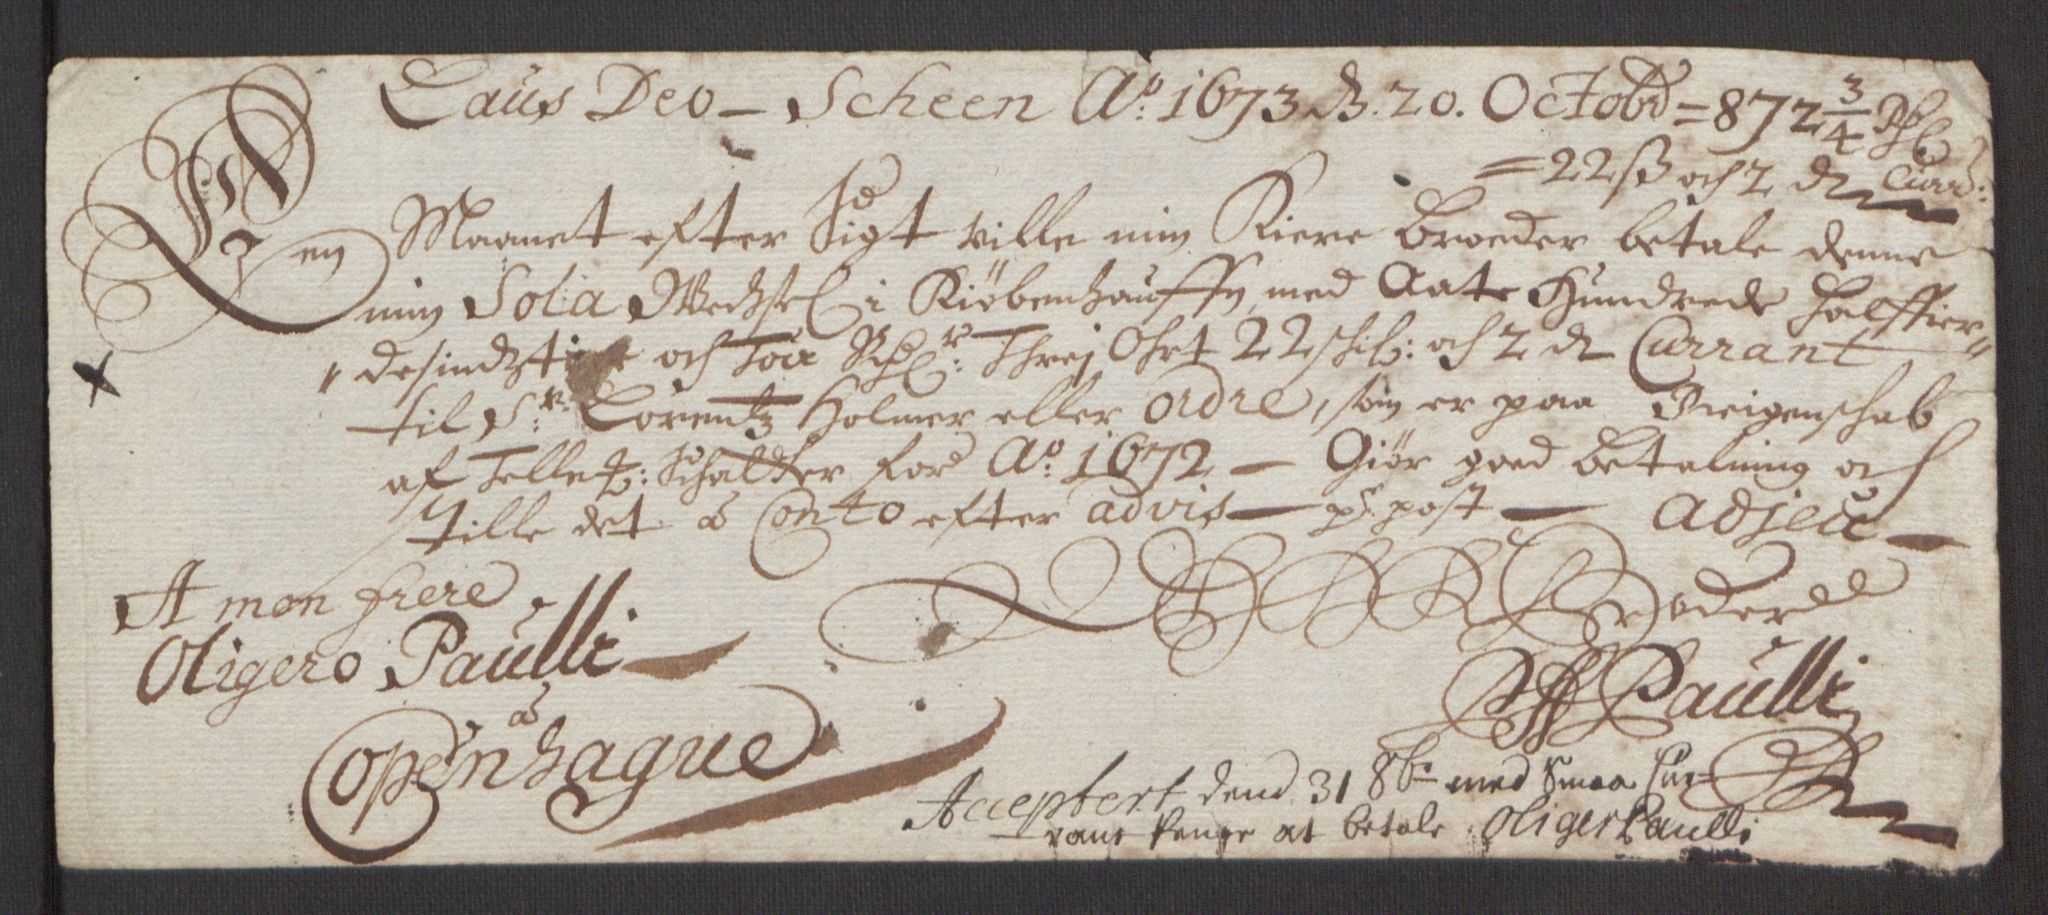 Laus Deo – Scheen Ao. 1673 d. 20. Octobr = 872 3/4 Rd
= 22 ß och 2 d Curr:
En Maanet efter Sigt ville min Kiere Broeder betale denne
min Sola Wechsel i Kiøbenhauffn med Aate Hundrede halffier-
desindztiue och Toe Rdlr: Threj Ohrt 22 schil: och 2 d Currant
til Sr. Lorentz Holmer eller ordre, som er paa Reigenschab
af Telle schatter for Ao. 1672 – Giør goed betalning och
stille det a Conto efter advis – pr. post – Adjeu –
A mon frere
Oligero Paulli
a
Copenhague
Broder
Paulli
Acceptert dend 31 8br med Smaa Cur=
rant penge at betale Oliger Paulli